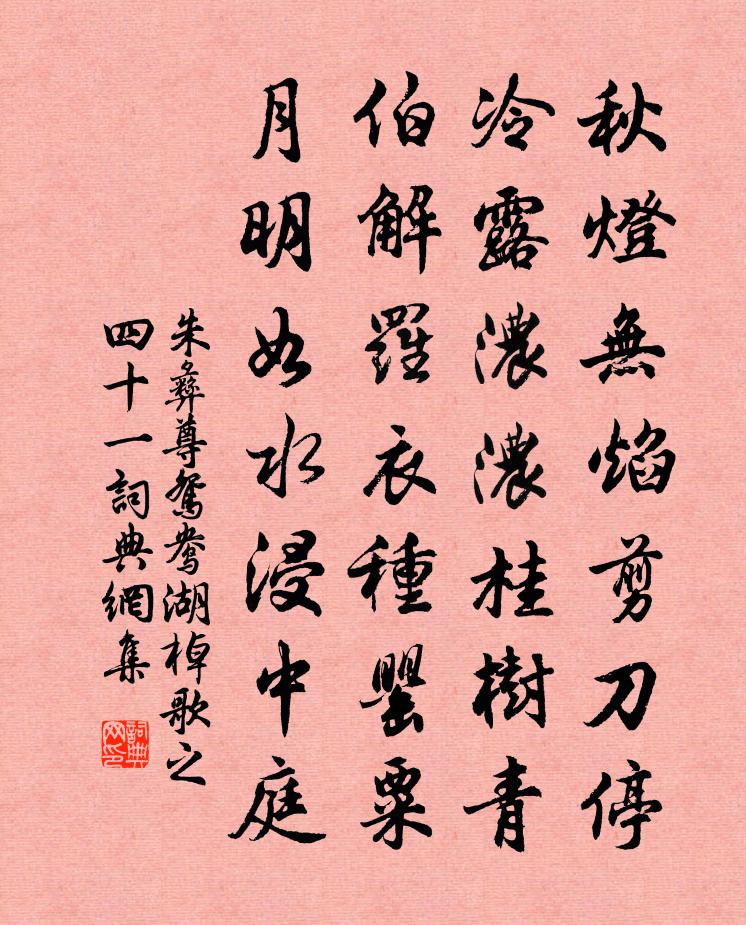 秋燈無焰剪刀停
冷露濃濃桂樹青
伯解羅衣種罌粟
月明如水浸中庭
朱彝尊鴛鴦湖棹歌之
四十一詞典網集
詞典
网印